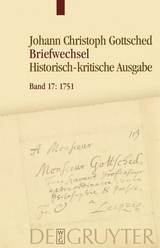 Johann Christoph Gottsched
Briefwechsel
Historisch-kritische Ausgabe
Band 17: 1751
A Monsieur
Monsieur Gottsched,
professeur
Philosophie & Poesie,
à Leipzig.
DE GRUYTER